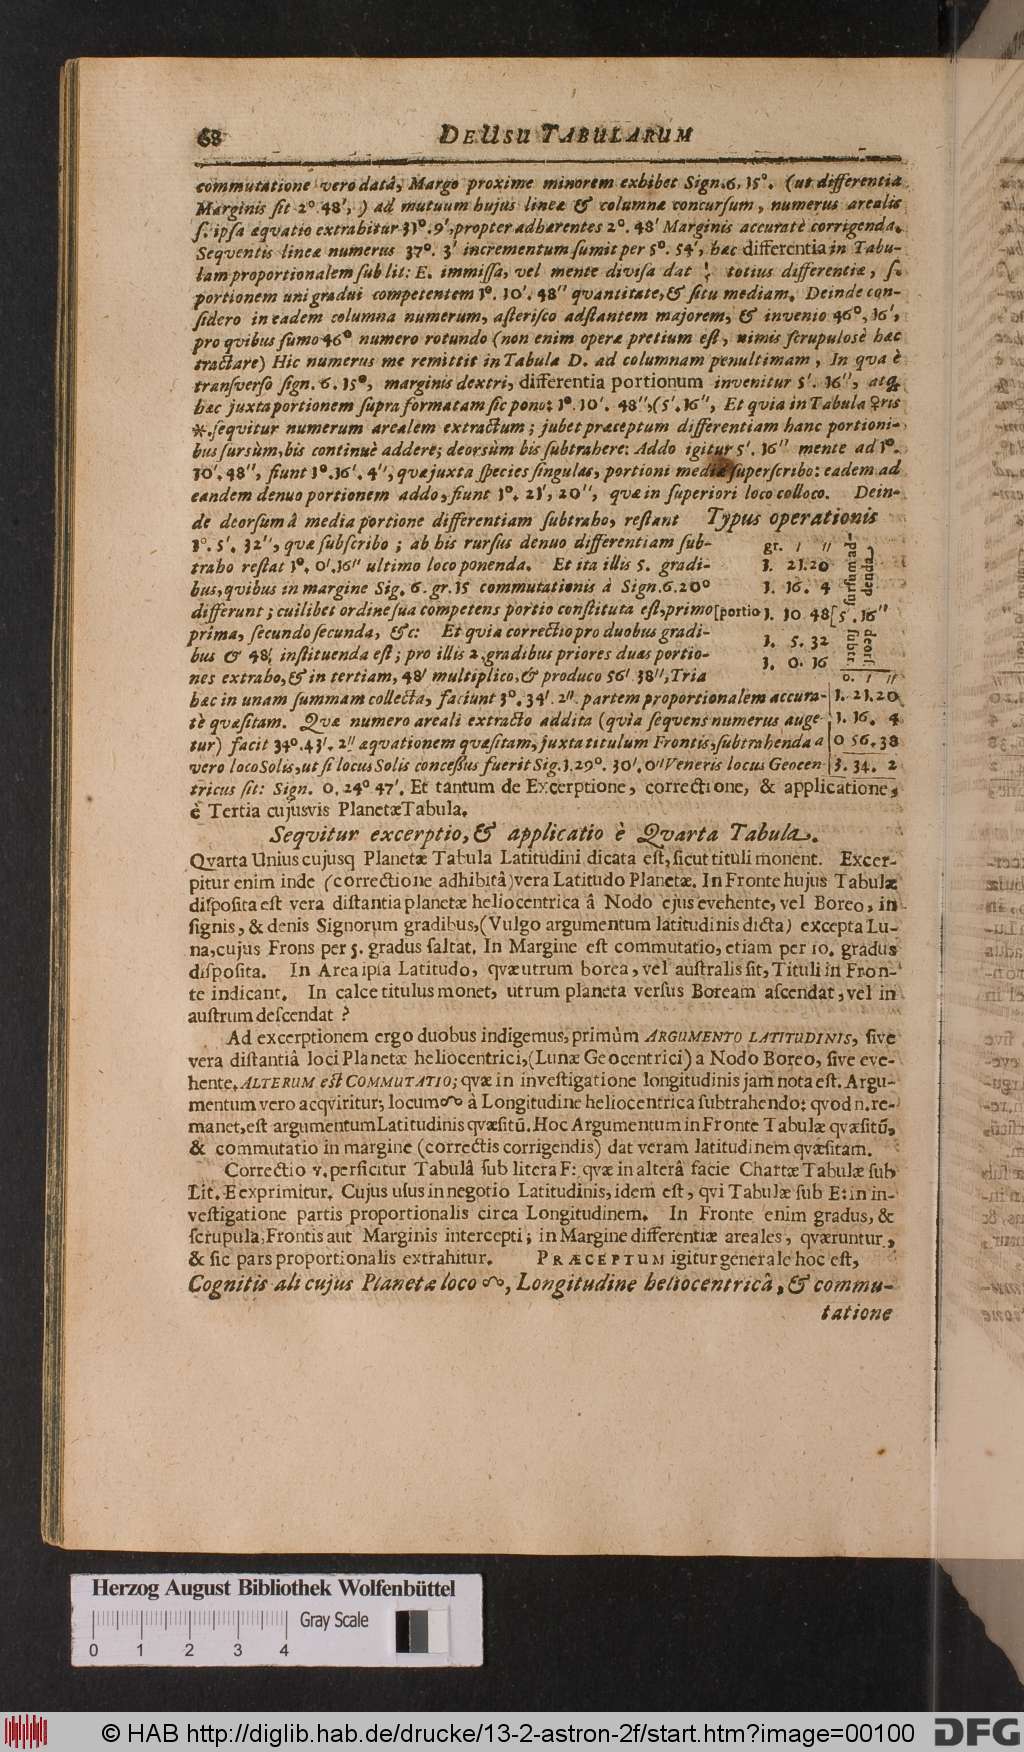 68 DE USU TABULARUM
commutatione vero datâ, Margo proxime minorem exhibet Sign. 6. 15°. (ut differentia
Marginis sit 2° 48′, ) ad mutuum hujus lineæ & columnæ concursum, numerus arealis
s. ipsa æquatio extrahitur 31°. 9′, propter adhærentes 2°. 48′ Marginis accuratè corrigenda.
Seqventis lineæ numerus 37°. 3′ incrementum sumit per 5°. 54′, hæc differentia in Tabu-
lam proportionalem sub lit: E. immissa, vel mente divisa dat totius differentiæ, s.
portionem uni gradui competentem 1°. 10′. 48″ quantitate, & situ mediam. Deinde con-
sidero in eadem columna numerum, asterisco adstantem majorem, & invenio 46°, 16′,
pro quibus sumo 46° numero rotundo (non enim operæ pretium est, nimis scrupulosè hæc
tractare) Hic numerus me remittit in Tabula D. ad columnam penultimam, In qua è
transverso sign. 6. 15°, marginis dextri, differentia portionum invenitur 5′. 16″, atq
hac juxta portionem supra formatam sic pono: 1°. 10′. 48″, (5′. 16″, Et qvia in Tabula ♀ris
✻. sequitur numerum arealem extractum; jubet præceptum differentiam hanc portioni-
bus sursùm, bis continuè addere; deorsùm bis subtrahere: Addo igitur 5′. 16″ mente ad 1°.
10′. 48″, fiunt 1°. 16′. 4″, quæ juxta species singulas, portioni mediæ superscribo: eadem ad
eandem denuo portionem addo, fiunt 1°. 21′, 20″, quæ in superiori loco colloco. Dein-
de deorsum â media portione differentiam subtraho, restant Typus operationis
1°. 5′. 32″, quæ subscribo; ab his rursus denuo differentiam sub- gr. ′ ″
traho restat 1°. 0′. 16″ ultimo loco ponenda. Et ita illis 5. gradi- 1. 21. 20
bus, qvibus in margine Sig. 6. gr. 15 commutationis à Sign. 6. 20° 1. 16. 4 sursum ad-denda
differunt; cuilibet ordine sua competens portio constituta est, primo [portio 1. 10 48 [5. 16″
prima, secundo secunda, &c: Et quia correctio pro duobus gradi- 1. 5. 32 deorsũ subtr.
bus & 48′, instituenda est; pro illis 2. gradibus priores duas portio- 1. 0. 16
nes extraho, & in tertiam, 48′ multiplico, & produco 56′. 38″, Tria 0. ′ ″
hæc in unam summam collecta, faciunt 3°. 34′. 2″. partem proportionalem accura- 1. 21. 20
tè quæsitam. Quæ numero areali extracto addita (quia sequens numerus auge- 1. 16. 4
tur) facit 34°. 43′. 2″ æquationem quæsitam, juxta titulum Frontis, subtrahenda a 0 56. 38
vero loco Solis, ut si locus Solis concessus fuerit Sig. 1. 29°. 30′. 0″ Veneris locus Geocen- 3. 34. 2
tricus sit: Sign. 0. 24° 47′. Et tantum de Excerptione, correctione, & applicatione,
è Tertia cujusvis Planetæ Tabula.
Seqvitur excerptio, & applicatio è Qvarta Tabula.
Qvarta Unius cujusq Planetæ Tabula Latitudini dicata est, sicut tituli monent. Excer-
pitur enim inde (correctione adhibitâ) vera Latitudo Planetæ. In Fronte hujus Tabulæ
disposita est vera distantia planetæ heliocentrica â Nodo ejus evehente, vel Boreo, in
signis, & denis Signorum gradibus, (Vulgo argumentum latitudinis dicta) excepta Lu-
na, cujus Frons per 5. gradus saltat. In Margine est commutatio, etiam per 10. gradus
disposita. In Area ipsa Latitudo, qvæ utrum borea, vel australis sit, Tituli in Fron-
te indicant. In calce titulus monet, utrum planeta versus Boream ascendat, vel in
austrum descendat ?
Ad excerptionem ergo duobus indigemus, primùm ARGUMENTO LATITUDINIS, sive
vera distantiâ loci Planetæ heliocentrici, (Lunæ Geocentrici) a Nodo Boreo, sive eve-
hente. ALTERUM est COMMUTATIO; qvæ in investigatione longitudinis jam nota est. Argu-
mentum vero acqviritur, locum ☊ à Longitudine heliocentrica subtrahendo: qvod n. re-
manet, est argumentum Latitudinis qvæsitũ. Hoc Argumentum in Fronte Tabulæ qvæsitũ,
& commutatio in margine (correctis corrigendis) dat veram latitudinem qvæsitam.
Correctio v. perficitur Tabulâ sub litera F: qvæ in alterâ facie Chartæ Tabulæ sub
Lit. E exprimitur. Cujus usus in negotio Latitudinis, idem est, qvi Tabulæ sub E: in in-
vestigatione partis proportionalis circa Longitudinem. In Fronte enim gradus, &
scrupula, Frontis aut Marginis intercepti; in Margine differentiæ areales, qværuntur,
& sic pars proportionalis extrahitur. PRÆCEPTUM igitur generale hoc est,
Cognitis alicujus Planetæ loco ☊, Longitudine heliocentricâ, & commu-
tatione
Herzog August Bibliothek Wolfenbüttel
Gray Scale
0 1 2 3 4
© HAB http://diglib.hab.de/drucke/13-2-astron-2f/start.htm?image=00100
DFG